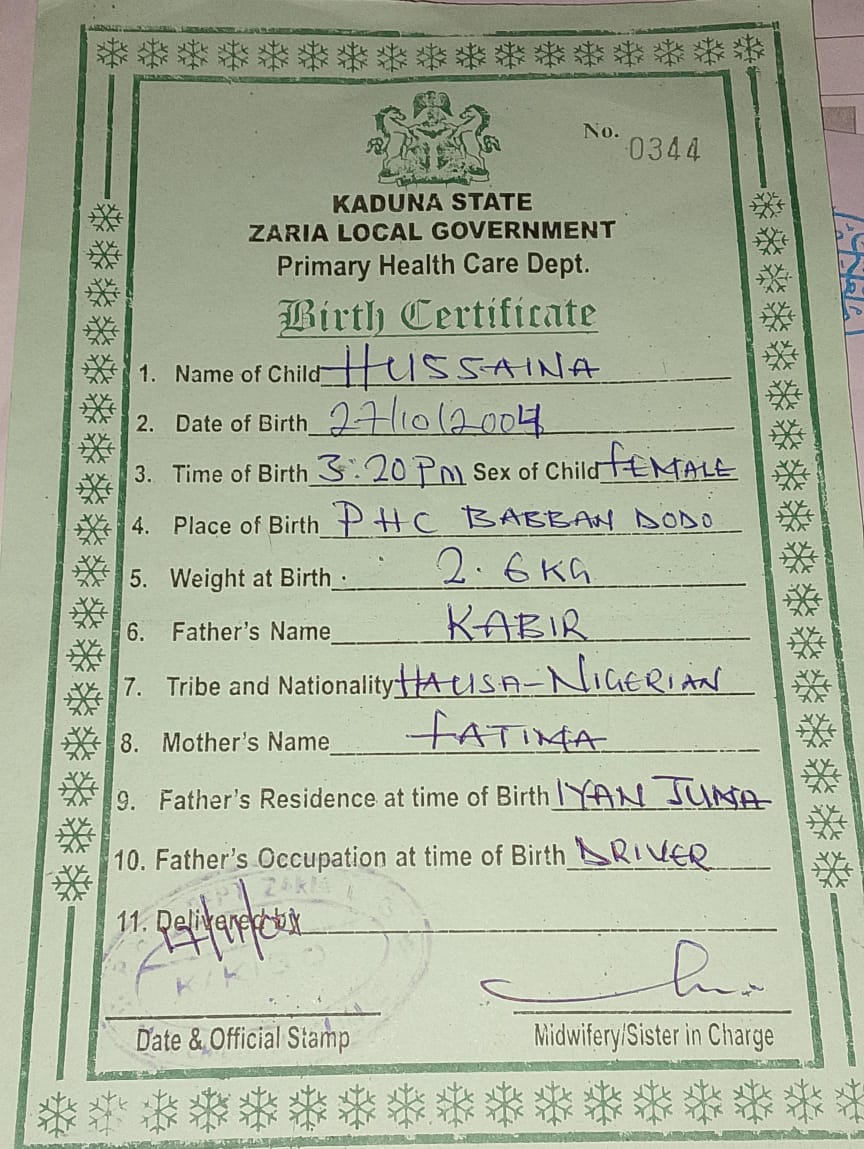 No. 0344
KADUNA STATE
ZARIA LOCAL GOVERNMENT
Primary Health Care Dept.
Birth Certificate
1. Name of Child HUSSAINA
2. Date of Birth 27/10/2004
3. Time of Birth 3:20PM Sex of Child FEMALE
4. Place of Birth PHC BABBAN DODO
5. Weight at Birth 2.6KG
6. Father's Name KABIR
7. Tribe and Nationality HAUSA-NIGERIAN
8. Mother's Name FATIMA
9. Father's Residence at time of Birth IYAN JUMA
10. Father's Occupation at time of Birth DRIVER
11. Delivered by
Date & Official Stamp
Midwifery/Sister in Charge